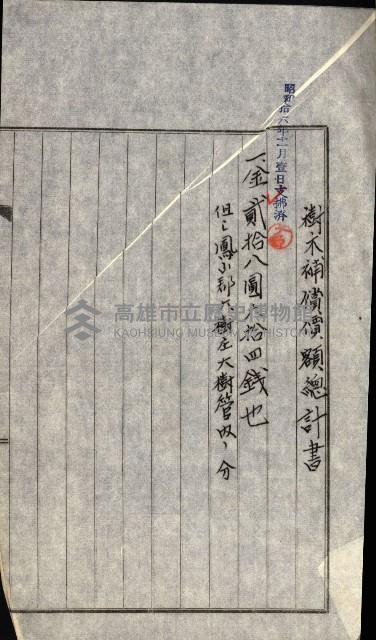 樹木補償價額總計書
昭和拾六年十二月壹日支拂濟
一、金貳拾八圓八拾四錢也
但シ鳳山郡大樹庄大樹管內ノ分
高雄市立歷史博物館
KAOHSIUNG MUSEUM OF HISTORY